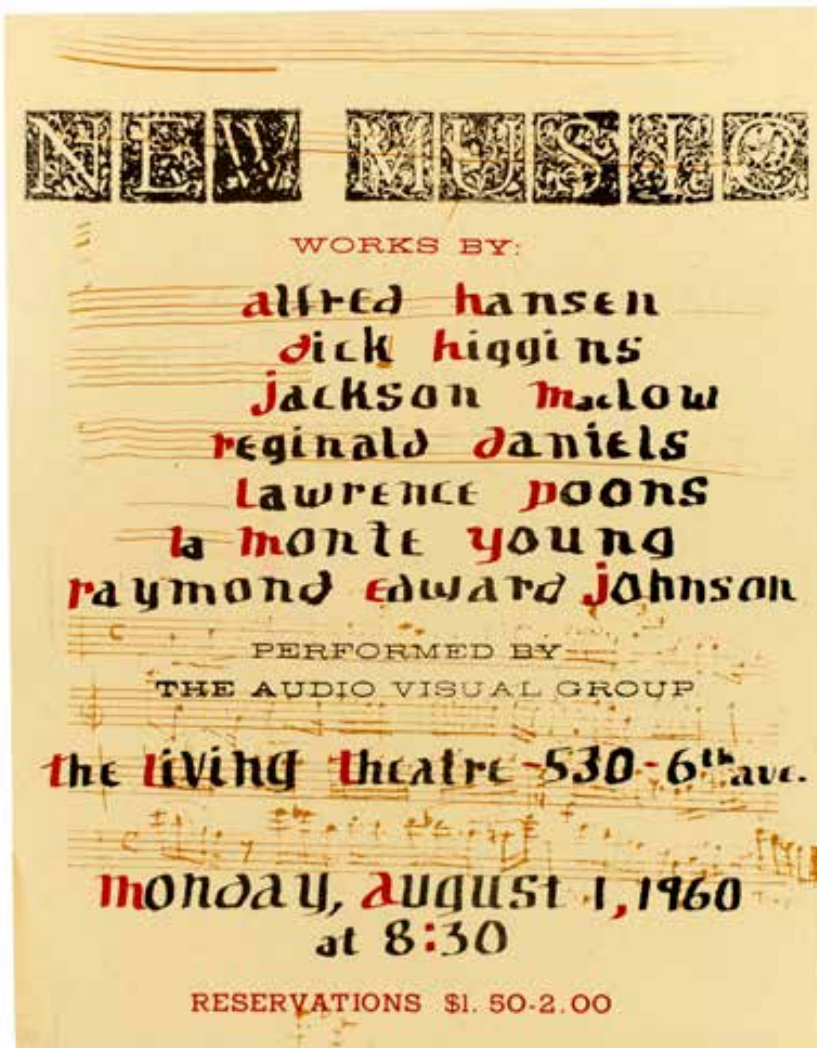 NEW MUSIC
WORKS BY:
alfred hansen
dick higgins
jackson maclow
reginald daniels
lawrence poons
la monte young
raymond edward johnson
PERFORMED BY
THE AUDIO VISUAL GROUP
the living theatre - 530 - 6th ave.
monday, august 1, 1960
at 8:30
RESERVATIONS $1.50-2.00